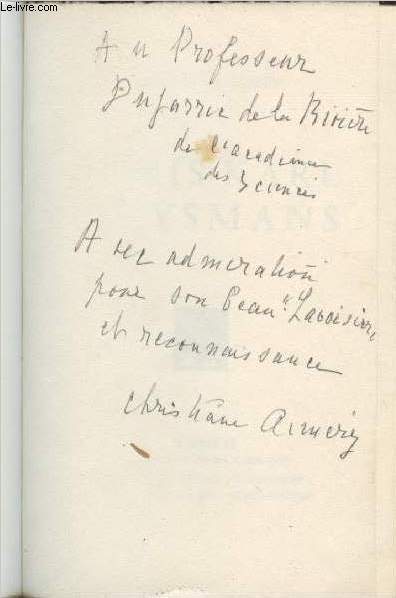 © Le-livre.com
Au Professeur
Dujarric de la Rivière
de l'academie
des Sciences
YSMANS
Avec admiration
pour son beau "Lavoisier"
et reconnaissance
Christiane Aimery